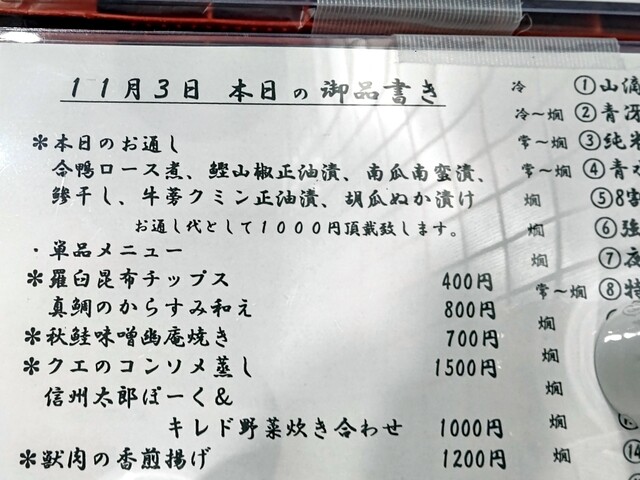 11月3日 本日の御品書き
＊本日のお通し
合鴨ロース煮、鰹山椒正油漬、南瓜南蛮漬、
鯵干し、牛蒡クミン正油漬、胡瓜ぬか漬け
お通し代として1000円頂戴致します。
・単品メニュー
＊羅臼昆布チップス 400円
真鯛のからすみ和え 800円
＊秋鮭味噌幽庵焼き 700円
＊クエのコンソメ蒸し 1500円
信州太郎ぽーく&
キレド野菜炊き合わせ 1000円
＊獣肉の香煎揚げ 1200円
冷 ①山滴
冷～燗 ②青冴
常～燗 ③純米
常～燗 ④青
燗 ⑤8字
燗 ⑥強
燗 ⑦夜
常～燗 ⑧特
燗
燗
燗
燗
燗